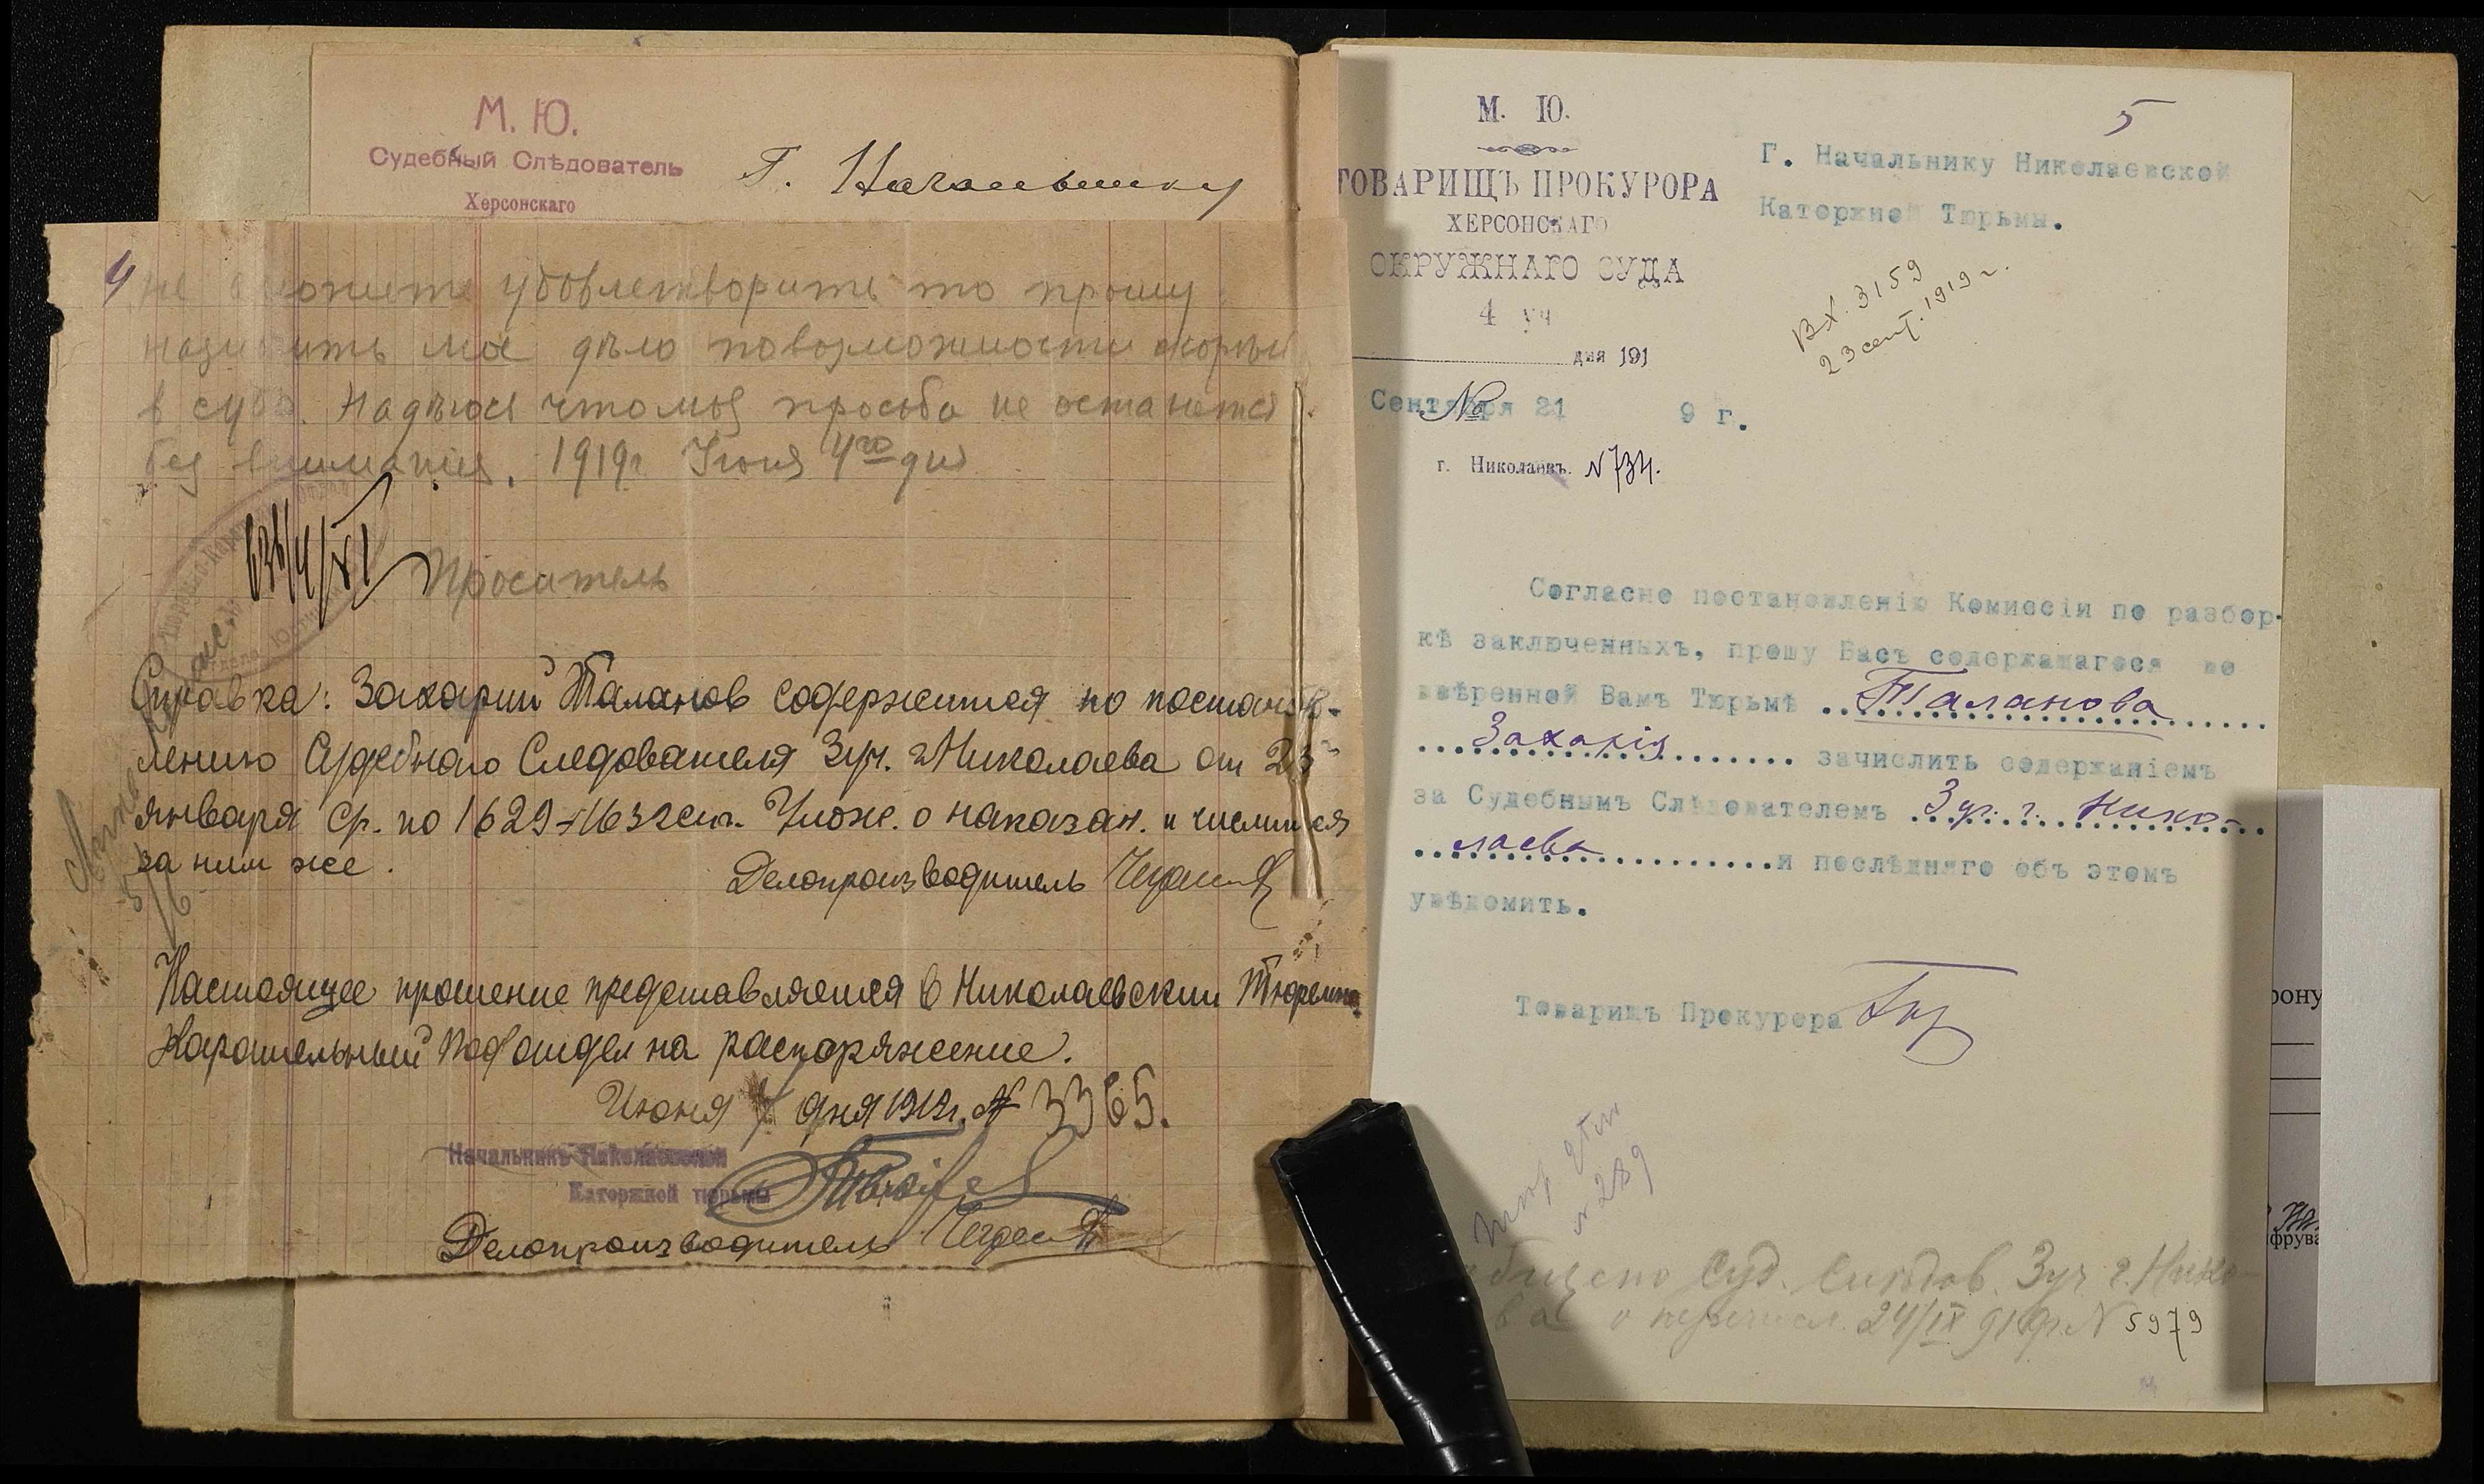 М. Ю.
Судебный Слѣдователь
Херсонскаго
Г. Начальнику
4
не можете удовлетворить то прошу
мое дѣло повозможности скорѣй
в суд. Надѣюсь что моя просьба не останется
без вниманія. 1919г. Іюня 4го дня
Проситель
Справка: Захарий Таланов содержится по постанов-
лению Судебного Следователя 3 уч. г. Николаева от 23
января с.г. по 1629-1632 ст. Улож. о наказан. и числится
за ним же.
Делопроизводитель
5/6
Настоящее прошение представляется в Николаевский Тюремно-
Карательный Подотдел на распоряжение.
Июня 4 дня 1919г. № 3365.
Начальникъ Николаевской
Каторжной тюрьмы
Делопроизводитель
5
М. Ю.
ТОВАРИЩЪ ПРОКУРОРА
ХЕРСОНСКАГО
ОКРУЖНАГО СУДА
4 уч
дня 191
Сентября 21 9 г.
№
г. Николаевъ. № 734.
Г. Начальнику Николаевской
Каторжной Тюрьмы.
Вх. 3159
23 сент. 1919 г.
Согласно постановленію Комиссіи по разбор-
кѣ заключенныхъ, прошу Васъ содержащагося во
ввѣренной Вамъ Тюрьмѣ Таланова
Захарія зачислить содержаніемъ
за Судебнымъ Слѣдователемъ 3 уч. г. Нико-
лаева и послѣдняго объ этомъ
увѣдомить.
Товарищъ Прокурора
№ 289
Суд. Слѣдов. 3 уч г. Нико-
ва о перечисл. 24/IX 919г. № 5979